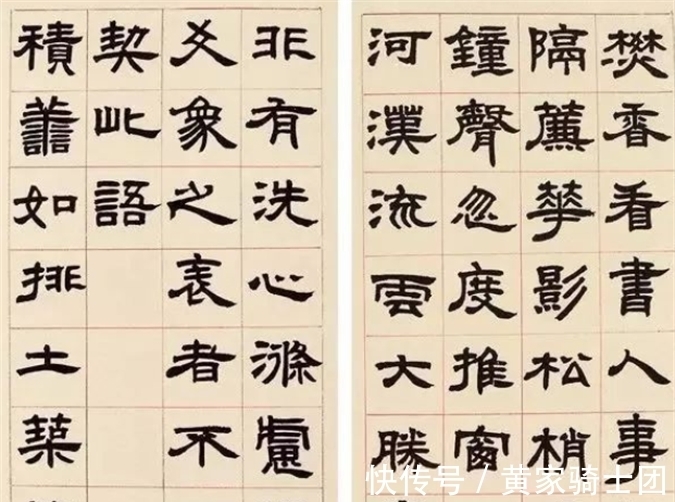 焚香看書人事
隔薕華影松梢
鐘聲忽度推窗
河漢流雲大勝
非有洗心滌慮
爻象之表者不
契此語
積譱如排土築
快传号 / 黄家骑士团